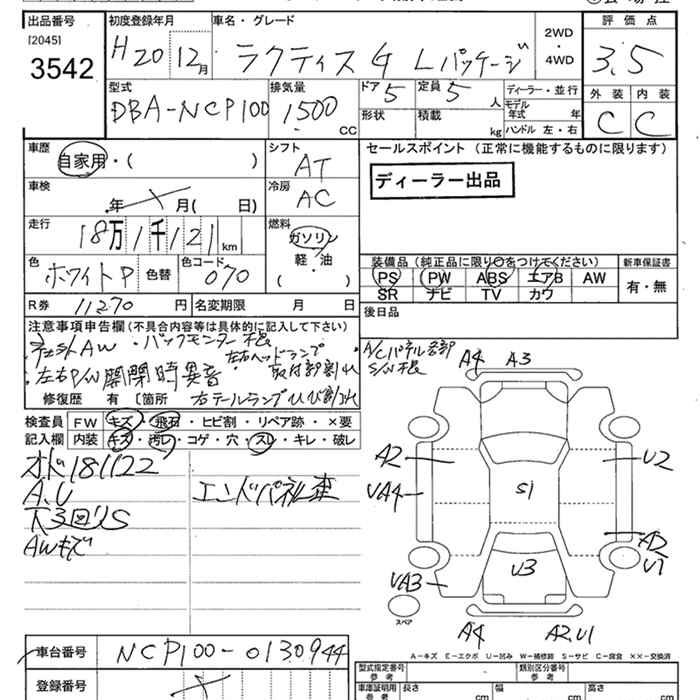 出品番号 初度登録年月 車名・グレード 2WD・4WD 評価点
[2045]
3542
H20 12月 ラクティス G Lパッケージ 3.5
型式 排気量 ドア 5 定員 5人 ディーラー・並行 外装 内装
DBA-NCP100 1500cc 形状 積載 kg モデル年式 年 C C
ハンドル 左・右
車歴 シフト セールスポイント (正常に機能するものに限ります)
自家用・( ) AT
ディーラー出品
車検 冷房
年 月( 日) AC
走行 燃料
18万1千121km ガソリン
軽・油
( )
装備品 (純正品に限り○をつけてください) 新車保証書
色 色替 色コード PS PW ABS エアB AW 有・無
ホワイトP 070 SR ナビ TV カワ
R券 11270円 名変期限 月 日 後日品
注意事項申告欄(不具合内容等は具体的に記入して下さい)
社外AW・バックモニター根
左右ヘッドランプ
左右P/W開閉時異音 取付部割れ
修復歴 有 〔箇所 右テールランプひび割れ
A/Cパネル各部
S/W根
検査員 FW キズ・飛石・ヒビ割・リペア跡・×要
記入欄 内装 キズ・汚レ・コゲ・穴・スレ・キレ・破レ
オド181122
A.U エンドパネル歪
下3回りS
AWキズ
A4 A3
A2 U2
UA4 S1
A2
U1
UA3 U3
スペア
A4 A2,U1
A-キズ E-エクボ U-凹み W-補修跡 S-サビ C-腐食 XX-交換済
車台番号 NCP100-0130944
登録番号
参考 参考 参考 参考
型式指定番号 類別区分番号
車庫証明用 長さ 幅 高さ
参考 cm cm cm